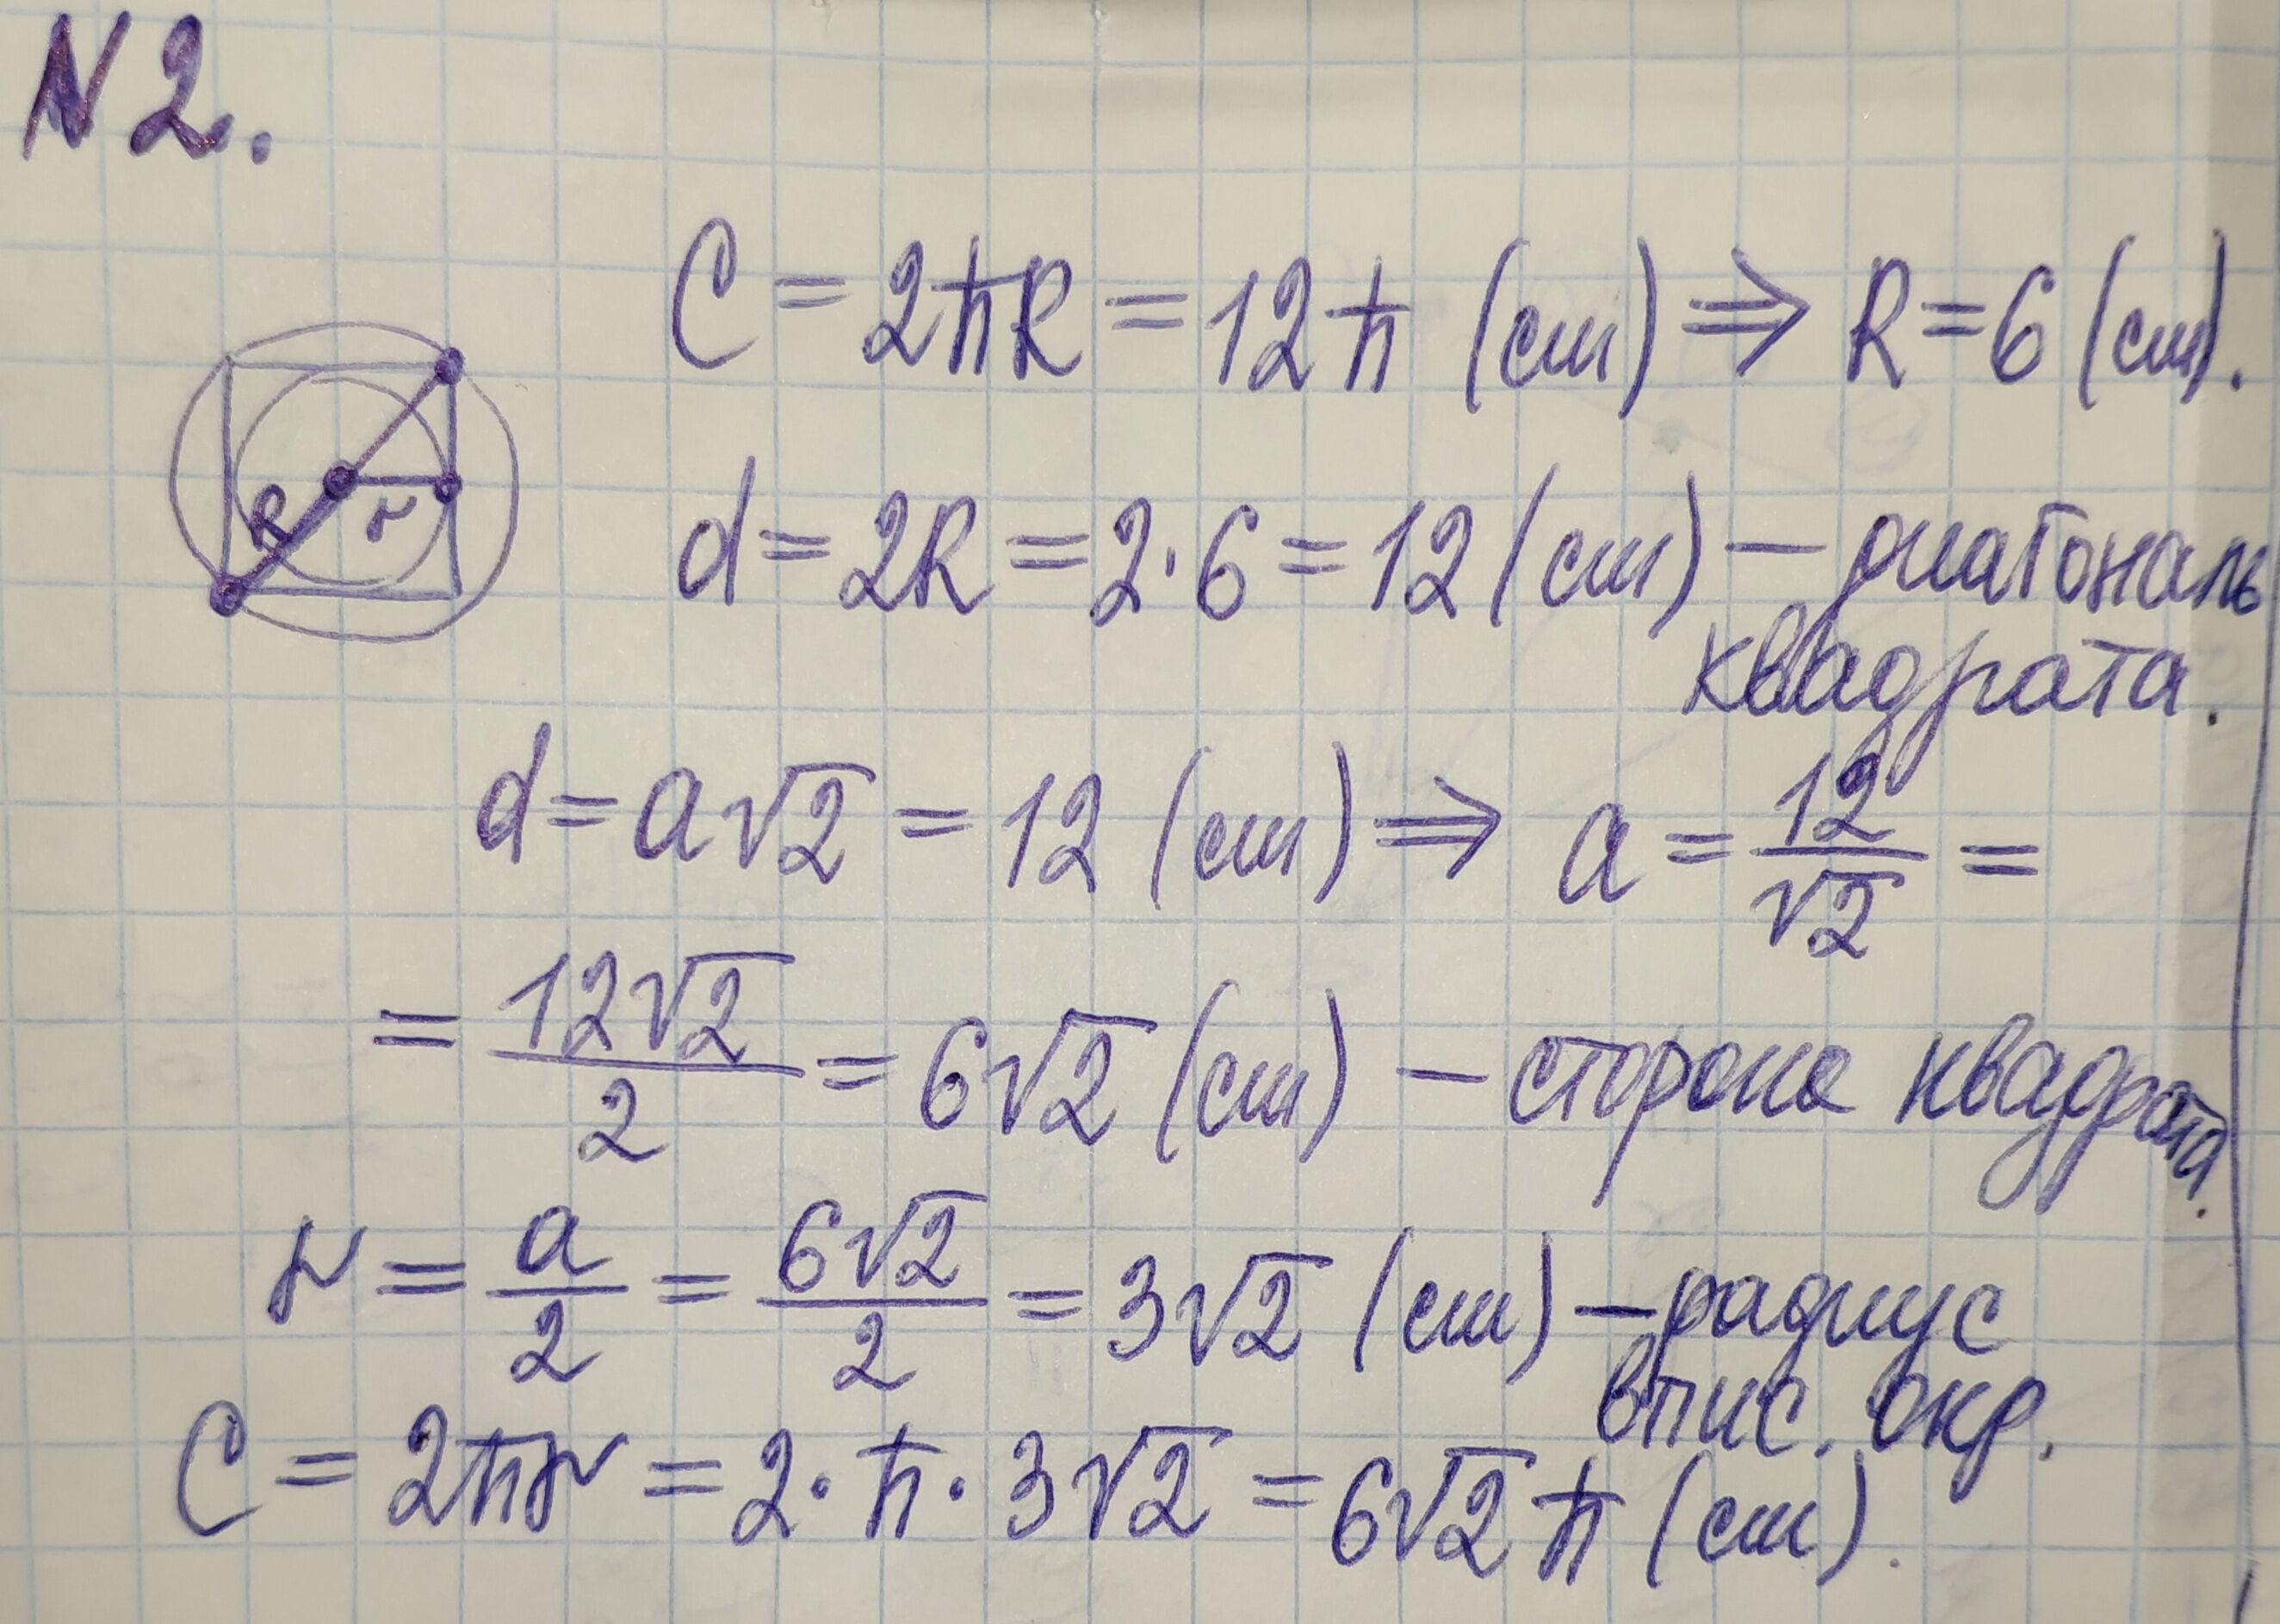 N2.
C = 2πR = 12π (cm) ⇒ R = 6 (cm).
R r
d = 2R = 2·6 = 12 (cm) — диагональ
квадрата.
d = a√2 = 12 (cm) ⇒ a = 12/√2 =
= 12√2/2 = 6√2 (cm) — сторона квадрата.
r = a/2 = 6√2/2 = 3√2 (cm) — радиус
впис. окр.
C = 2πr = 2·π·3√2 = 6√2 π (cm).